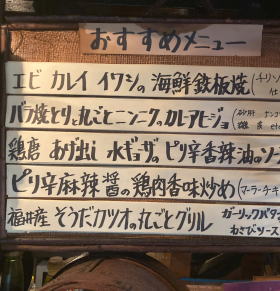 おすすめメニュー
エビ カレイ イワシの 海鮮鉄板焼(チリソ
仕
バラ焼とりと丸ごとニンニクのカレーアヒージョ(砂肝
鶏唐 あげ出し 水ギョーザのピリ辛香辣油のソー
ピリ辛麻辣醤の鶏肉香味炒め(マーラーチキ
福井産 そうだカツオの丸ごとグリル ガーリックバター
わさびソース